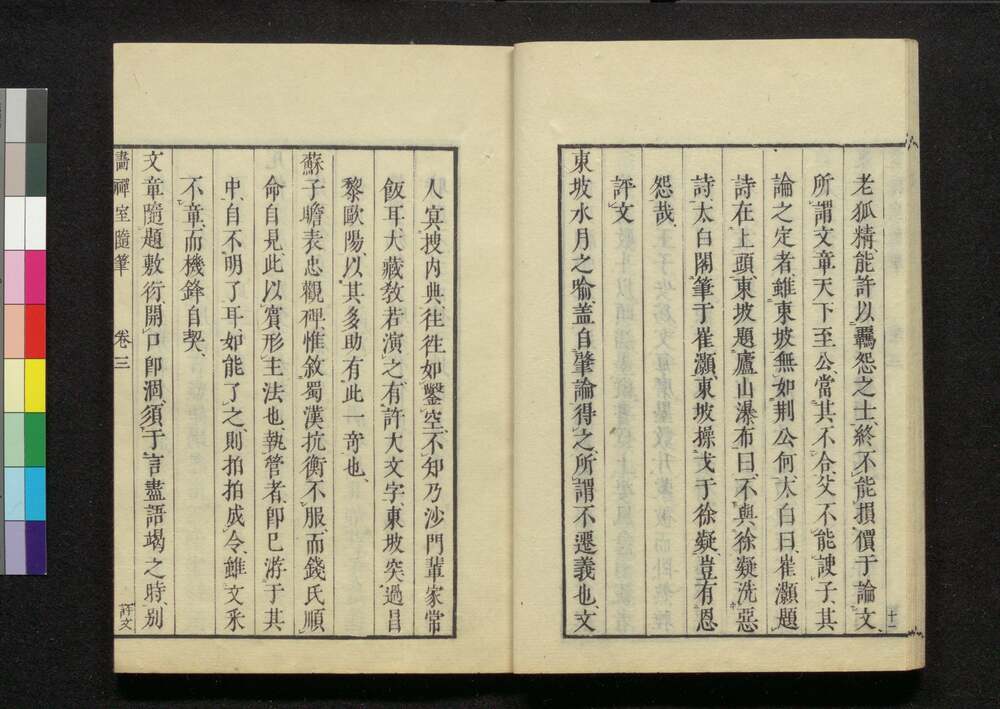 老狐精能許以羈怨之士終不能損價于論文
所謂文章天下至公當其不合父不能諛子其
論之定者雖東坡無如荆公何太白曰崔灝題
詩在上頭東坡題廬山瀑布曰不與徐凝洗惡
詩太白閣筆于崔灝東坡操戈于徐凝豈有恩
怨哉
評文
東坡水月之喻蓋自肇論得之所謂不遷義也文
人冥搜内典往往如鑿空不知乃沙門輩家常
飯耳大藏敎若演之有許大文字東坡突過昌
黎歐陽以其多助有此一奇也
蘇子瞻表忠觀碑惟敘蜀漢抗衡不服而錢氏順
命自見此以賓形主法也執管者即巳游于其
中自不明了耳如能了之則拍拍成令雖文采
不章而機鋒自契
文章隨題敷衍開口即涸須于言盡語竭之時别
畵禪室隨筆 卷三 評文
十一